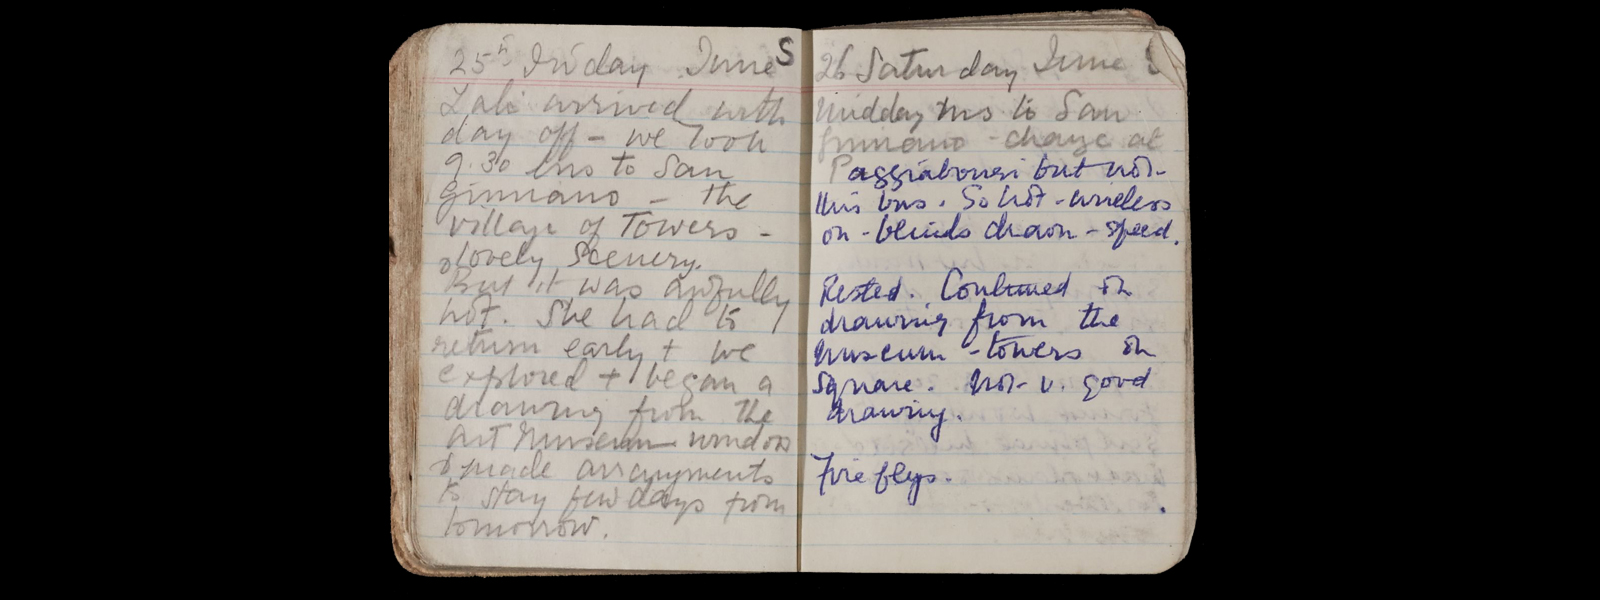 25th Friday June S
Lali arrived with
day off - we took
9.30 bus to San
Gimniano - the
village of Towers -
lovely scenery.
But it was awfully
hot. She had to
return early + we
explored + began a
drawing from the
Art Museum window
& made arrangments
to stay few days from
tomorrow.
26 Saturday June
Midday bus to San
Gimniano - change at
Paggiabonsi but not
this bus. So hot - wireless
on - blinds drawn - speed.
Rested. Continued on
drawing from the
Museum - towers on
Square. Not v. good
drawing.
Fire flys.